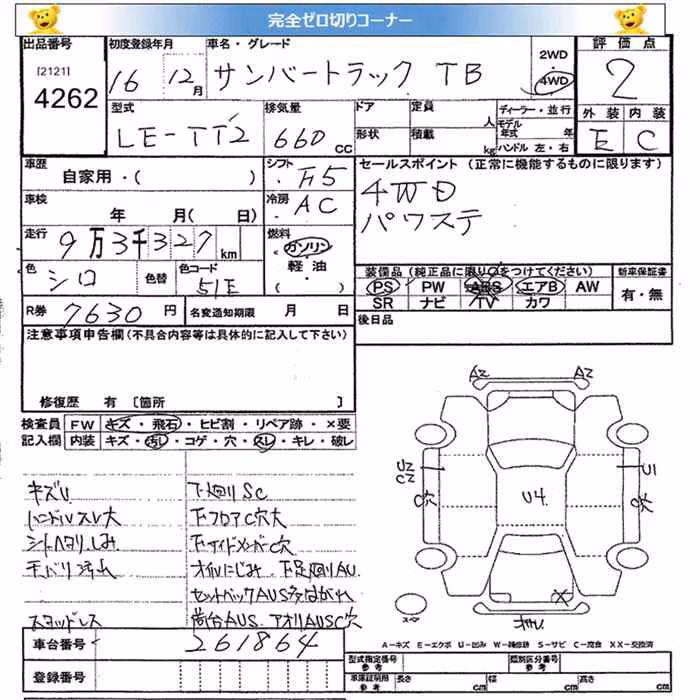 完全ゼロ切りコーナー
出品番号 初度登録年月 車名・グレード 評価点
[2121] 4262 16 12月 サンバートラック TB 2WD・4WD 2
型式 排気量 ドア 定員 人 ディーラー・並行 外装 内装
LE-TT2 660 CC 形状 積載 kg モデル年式 年 ハンドル 左・右 E C
車歴 シフト セールスポイント (正常に機能するものに限ります)
自家用・( ) F5 4WD
車検 冷房 パワステ
年 月( 日) AC
走行 燃料
9万3千327km ガソリン・軽油・
色 シロ 色替 色コード 51E
装備品(純正品に限り○をつけてください) 新車保証書
PS PW ABS エアB AW 有・無
SR ナビ TV カワ
R券 7630円 名変通知期限 月 日 後日品
注意事項申告欄(不具合内容等は具体的に記入して下さい)
修復歴 有 [箇所 ]
検査員 FW キズ・飛石・ヒビ割・リペア跡・×要
記入欄 内装 キズ・汚れ・コゲ・穴・スレ・キレ・破レ
AZ AZ
U2 CZ U1
C穴 U4 C穴
X
スペア
キズU 下廻りSC
ハンドルスレ大 下フロアC穴大
シートヘタリ しみ 下サイドメンバーC穴
天バリ汚れ オイルにじみ 下足廻りAU
セットバックAUS
スタッドレス 荷台AUS アオリAUSC穴
車台番号 261864
登録番号
A-キズ E-エクボ U-凹み W-補修跡 S-サビ C-腐食 XX-交換済
型式指定番号 参考 類別区分番号 参考
車庫証明用 参考 長さ cm 幅 cm 高さ cm